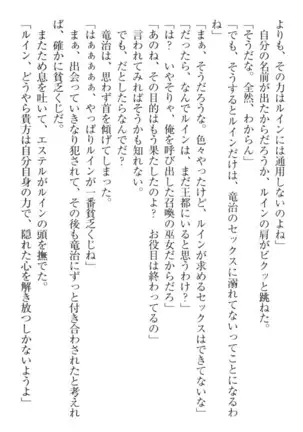 よりも、その力はルインには通用しないのよね」
自分の名前が出たからだろうか、ルインの肩がビクッと跳ねた。
「そうだな。全然、わからん」
「でも、そうするとルインだけは、竜治のセックスに溺れてないってことになるわ
ね」
「まぁ、そうだろうな。色々やったけど、ルインが求めるセックスはできてないな」
「だったら、なんでルインは、まだ王都にいると思うわけ?」
「は? いやそりゃ、俺を呼び出した召喚の巫女だからだろ」
「あのね、その目的はもう果たしたのよ? お役目は終わってるの」
言われてみればそうかも知れない。
でも、だとしたらなんでだ?
竜治は、思わず首を傾げてしまった。
「はぁぁぁぁ、やっぱりルインが一番貧乏くじね」
まぁ、出会っていきなり犯されて、その後も竜治にずっと付き合わされたと考えれ
ば、確かに貧乏くじだ。
またため息を吐いて、エステルがルインの頭を撫でた。
「ルイン、どうやら貴方は自分自身の力で、隠れた心を解き放つしかないようよ」